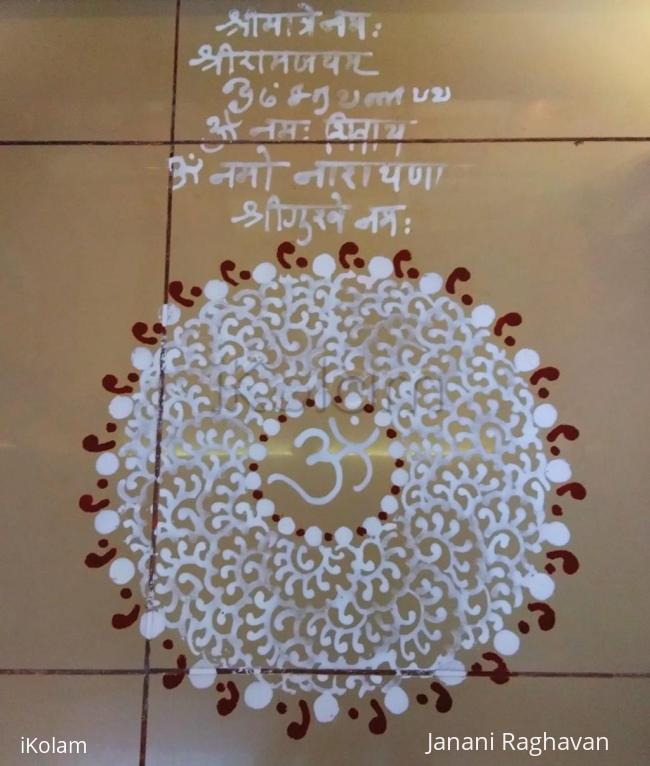 श्रीमात्रे नमः
श्रीरामजयम
ஓம் சரவணபவ
ॐ नमः शिवाय
ॐ नमो नारायणा
श्रीगुरवे नमः
iKolam
ॐ
iKolam
Janani Raghavan